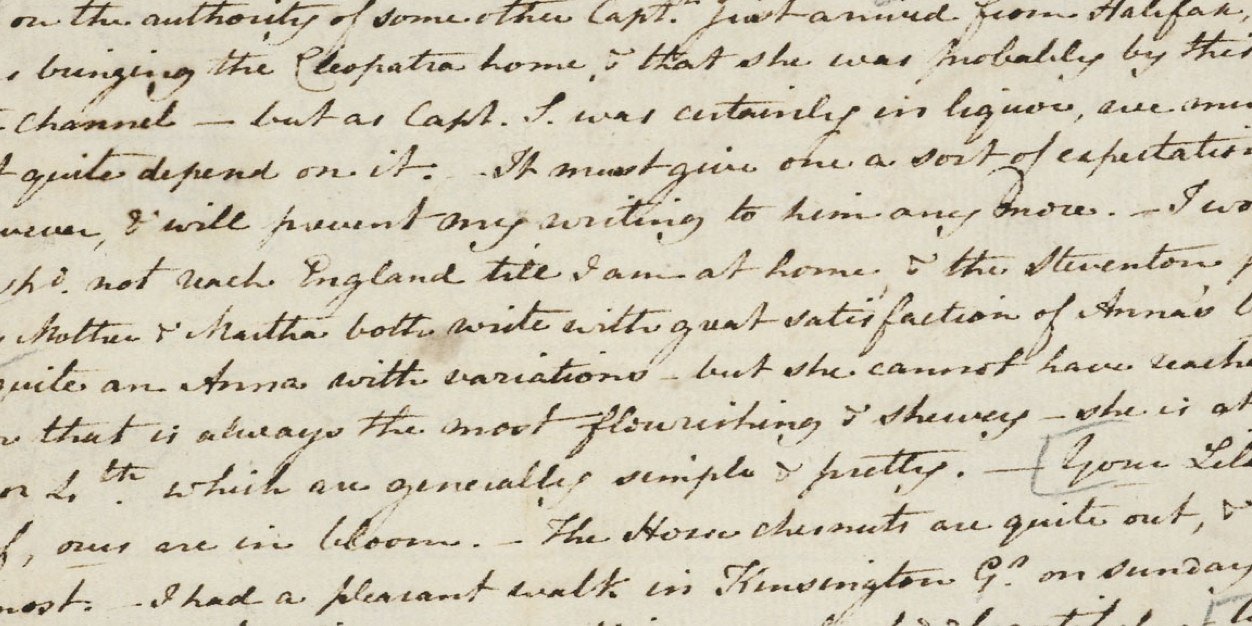 on the authority of some other Capt.ⁿ just arrived from Halifax,
bringing the Cleopatra home, & that she was probably by this
channel — but as Capt. S. was certainly in liquor, we mu
quite depend on it. — It must give one a sort of expectation
wever, & will prevent my writing to him any more. — I wo
not reach England till I am at home, & the Steventon
Mother & Martha both write with great satisfaction of Anna's
quite an Anna with variations — but she cannot have reache
that is always the most flourishing & shewey — she is at
or 4.ᵗʰ which are generally simple & pretty. — Your Lil
f, ours are in bloom. — The Horse chesnuts are quite out, &
most. — I had a pleasant walk in Kensington Gˢ on sunday